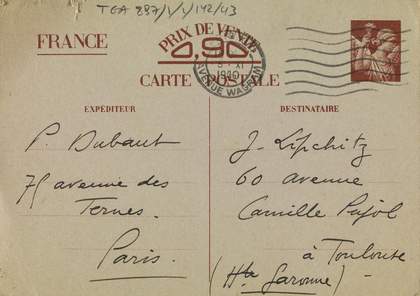 TGA 897/1/1/142/43
FRANCE
PRIX DE VENTE
0,90
CARTE POSTALE
AVENUE WAGRAM
1940
EXPÉDITEUR
DESTINATAIRE
P. Dubaut
75 avenue des
Ternes.
Paris.
J. Lipchitz
60 avenue
Camille Pujol
à Toulouse
(Hte Garonne)